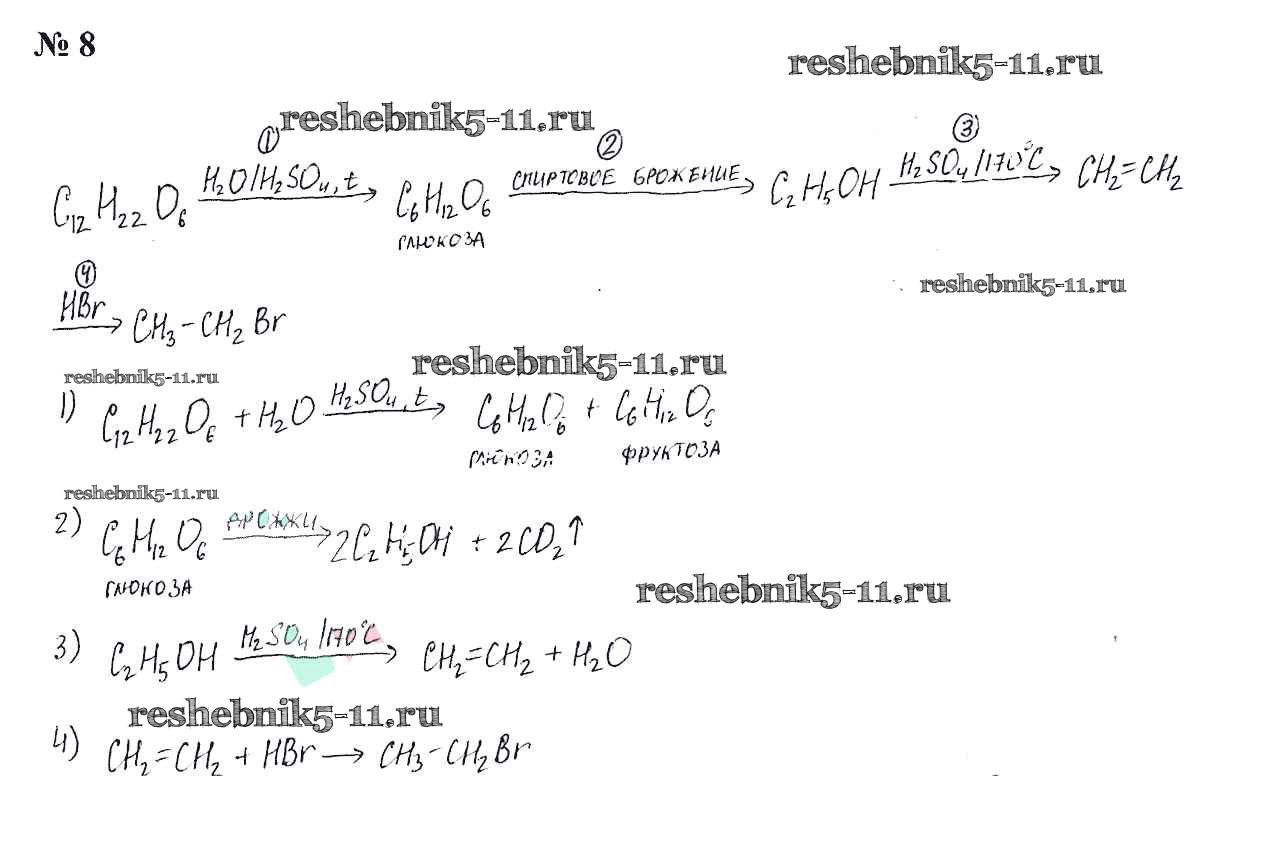 № 8
reshebnik5-11.ru
reshebnik5-11.ru
① ② ③
C₁₂H₂₂O₆ H₂O/H₂SO₄, t → C₆H₁₂O₆ СПИРТОВОЕ БРОЖЕНИЕ → C₂H₅OH H₂SO₄/170°C → CH₂=CH₂
ГЛЮКОЗА
④
reshebnik5-11.ru
HBr → CH₃-CH₂Br
reshebnik5-11.ru
reshebnik5-11.ru
1) C₁₂H₂₂O₆ + H₂O H₂SO₄, t → C₆H₁₂O₆ + C₆H₁₂O₆
ГЛЮКОЗА ФРУКТОЗА
reshebnik5-11.ru
2) C₆H₁₂O₆ ДРОЖЖИ → 2C₂H₅OH + 2CO₂↑
ГЛЮКОЗА
reshebnik5-11.ru
3) C₂H₅OH H₂SO₄/170°C → CH₂=CH₂ + H₂O
reshebnik5-11.ru
4) CH₂=CH₂ + HBr → CH₃-CH₂Br